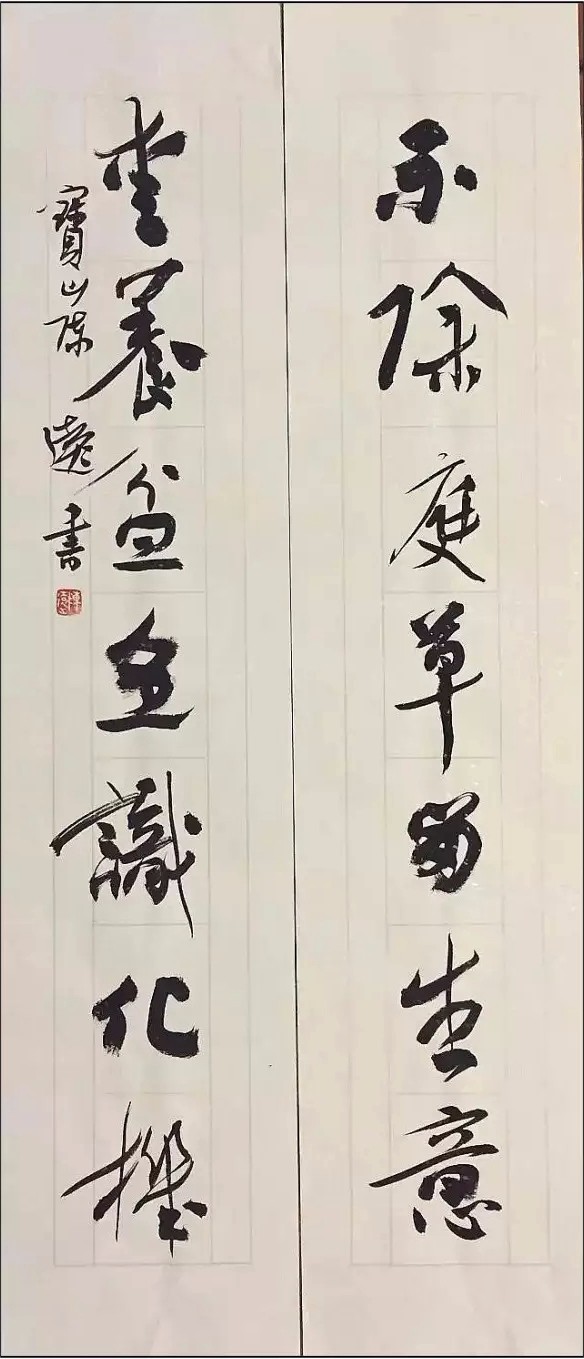 不除庭草留生意
愛養盆魚識化機
寶山陳 書